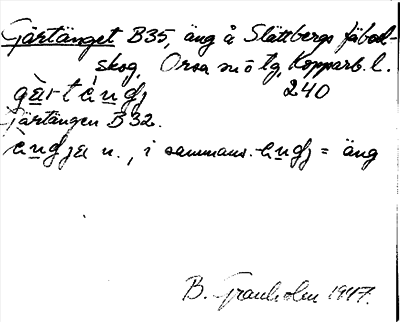 Gärtänget B35, äng å Slättbergs fäbod-
skog, Orsa sn ö tg, Kopparb. l.
240
Gärtängen B32.
n., i sammans. = äng
B. Granholm 1947.